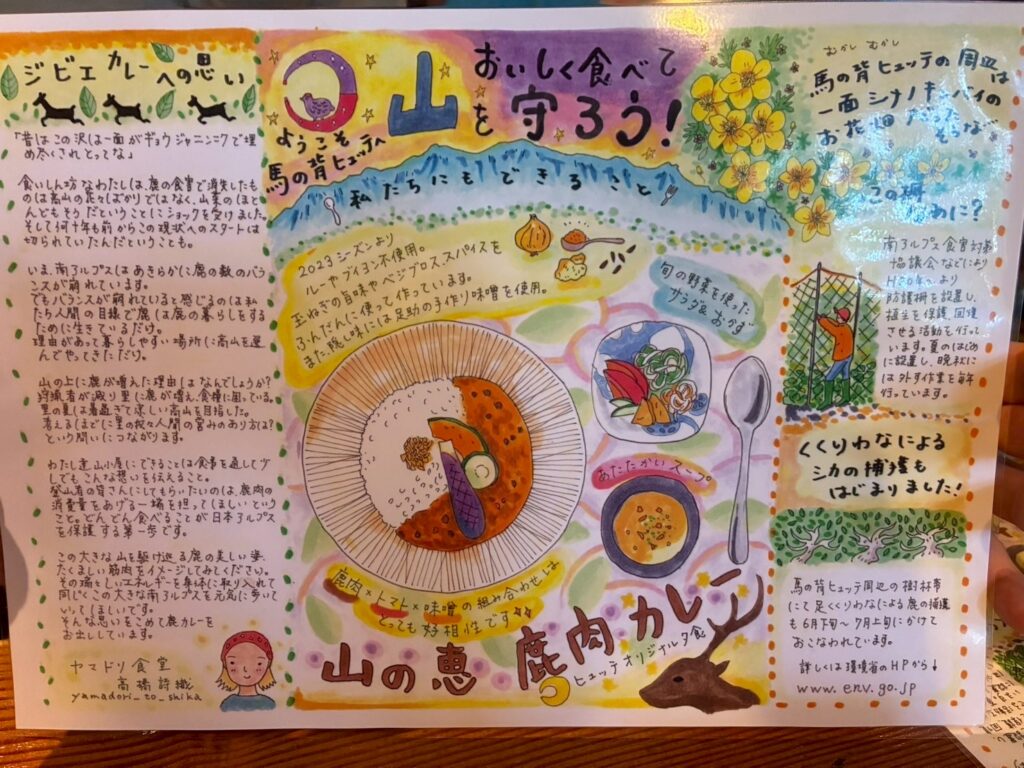 ジビエカレー
への思い
「昔はこの沢は一面がギョウジャニンニクで埋
め尽くされとってな」
食いしん坊なわたしは、鹿の食害で消失したも
のは高山の花々ばかりではなく、山菜のほと
んどもそうだということにショックを受けました。
そして何十年も前からこの現状へのスタートは
切られていたんだということも。
いま、南アルプスはあきらかに鹿の数のバラ
ンスが崩れています。
でもバランスが崩れていると感じるのは私
たち人間の目線で鹿は鹿の暮らしをする
ために生きているだけ。
理由があって暮らしやすい場所に高山を選
んでやってきただけ。
山の上に鹿が増えた理由はなんでしょうか?
狩猟者が減り里に鹿が増え、食糧に困っている。
里の夏は暑過ぎて涼しい高山を目指した。
考えるほどに里の我々人間の営みのあり方は?
という問いにつながります。
わたし達山小屋にできることは食事を通して少
しでもこんな想いを伝えること。
登山者の皆さんにしてもらいたいのは、鹿肉の
消費量をあげる一端を担ってほしいというこ
と。どんどん食べることが日本アルプス
を保護する第一歩です。
この大きな山を駆け巡る鹿の美しい姿、
たくましい筋肉をイメージしてみてください。
その瑞々しいエネルギーを身体に取り入れて
同じくこの大きな南アルプスを元気に歩いて
いってほしいです。
そんな思いをこめて鹿カレーを
お出ししています。
ヤマドリ食堂
高橋詩織
yamadori_to_shika
ようこそ
馬の背ヒュッテへ
山
おいしく食べて
を守ろう!
私たちにもできること
2023シーズンより
ルーやブイヨン不使用。
玉ねぎの旨味やベジブロス、スパイスを
ふんだんに使って作っています。
また、隠し味には足助の手作り味噌を使用。
旬の野菜を使った
サラダ&おかず
あたたかいスープ。
鹿肉×トマト×味噌の組み合わせは
とっても好相性です
山の恵 鹿肉カレー
ヒュッテオリジナル夕食
むかし むかし
馬の背ヒュッテの周辺は
一面シナノキンバイの
お花畑だった
そうな。
この柵
めに?
南アルプス食害対策
協議会などにより
H20年より
防護柵を設置し、
植生を保護、回復
させる活動を行って
います。夏のはじめ
に設置し、晩秋に
は外す作業を毎年
行っています。
くくりわなによる
シカの捕獲も
はじまりました!
馬の背ヒュッテ周辺の樹林帯
にて足くくりわなによる鹿の捕獲
も6月下旬~7月上旬にかけて
おこなわれています。
詳しくは環境省のHPから↓
www.env.go.jp